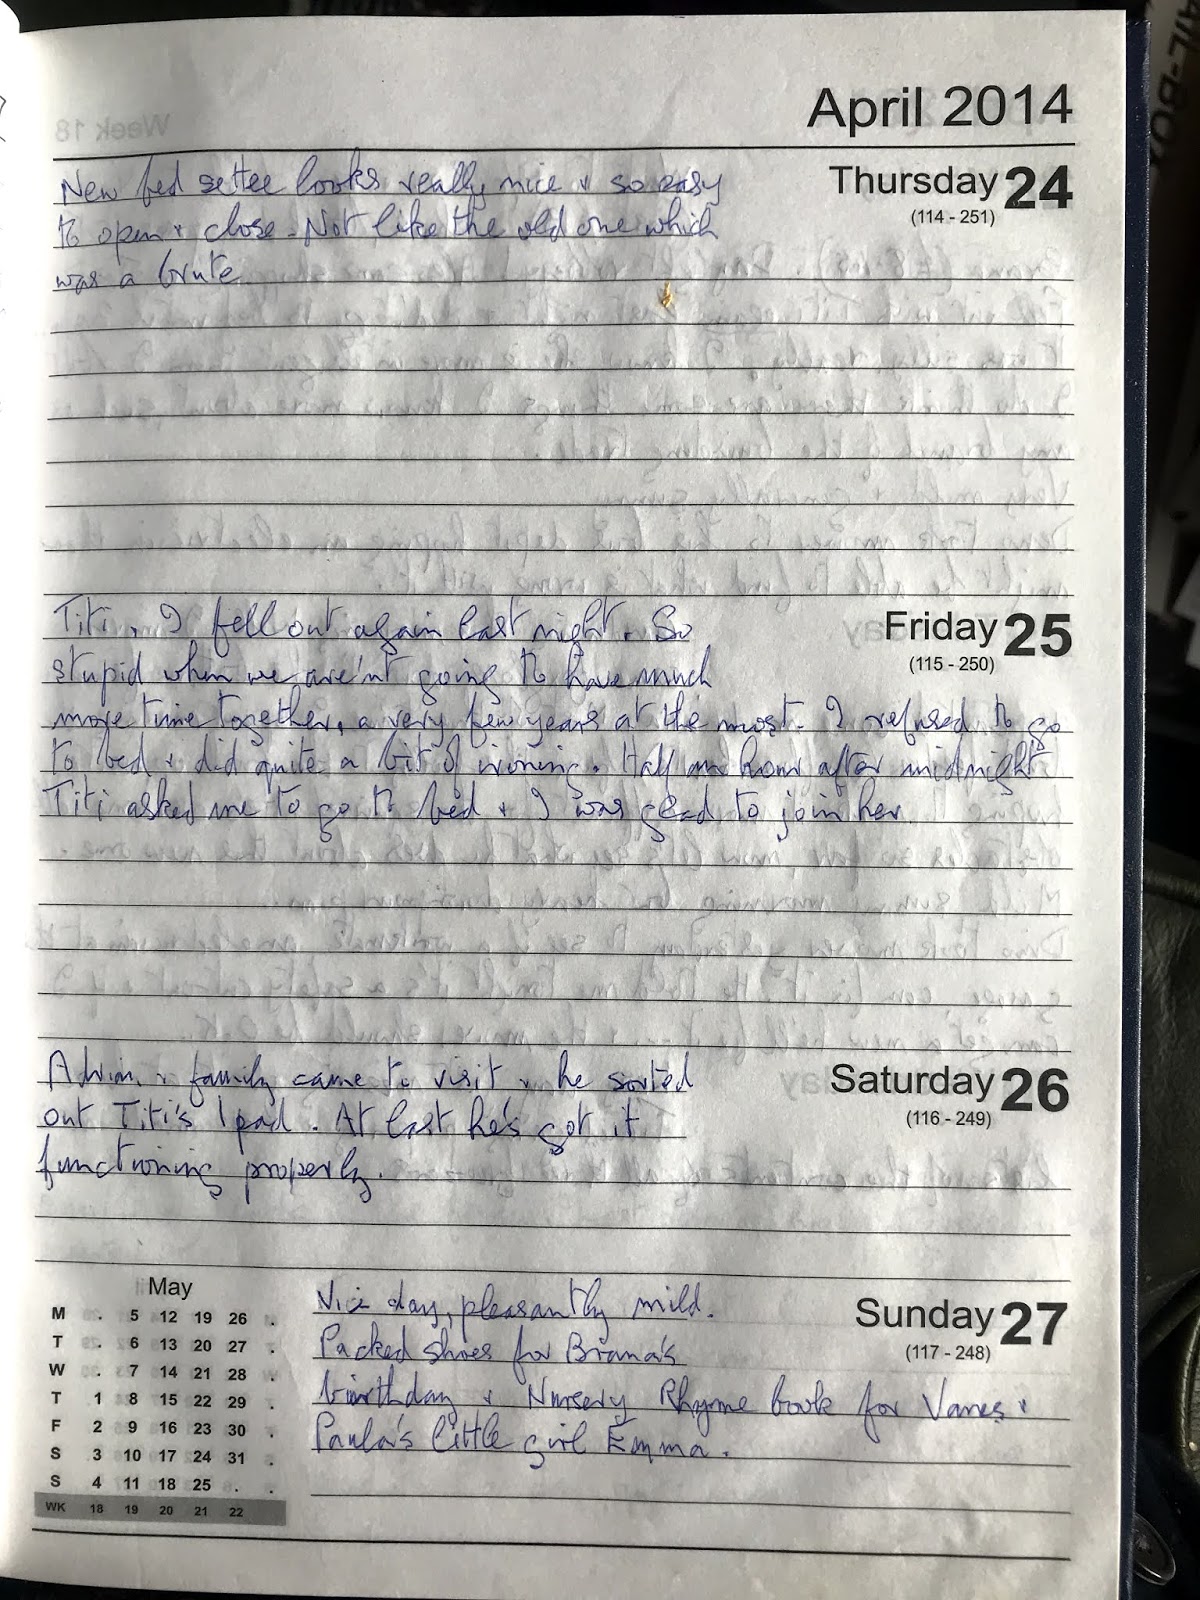 April 2014
Week 18
Thursday 24
(114 - 251)
New bed settee looks really nice & so easy
to open & close. Not like the old one which
was a brute
Friday 25
(115 - 250)
Titi & I fell out again last night. So
stupid when we are'nt going to have much
more time together, a very few years at the most. I refused to go
to bed & did quite a bit of ironing. Half an hour after midnight
Titi asked me to go to bed & I was glad to join her.
Saturday 26
(116 - 249)
& family came to visit & he sorted
out Titi's Ipad. At last he's got it
functioning properly.
Sunday 27
(117 - 248)
Nice day, pleasantly mild.
Packed shoes for Briana's
birthday & Nursery Rhyme book for Vanes &
Paula's little girl Emma.
May
M 5 12 19 26
T 6 13 20 27
W 7 14 21 28
T 1 8 15 22 29
F 2 9 16 23 30
S 3 10 17 24 31
S 4 11 18 25
WK 18 19 20 21 22